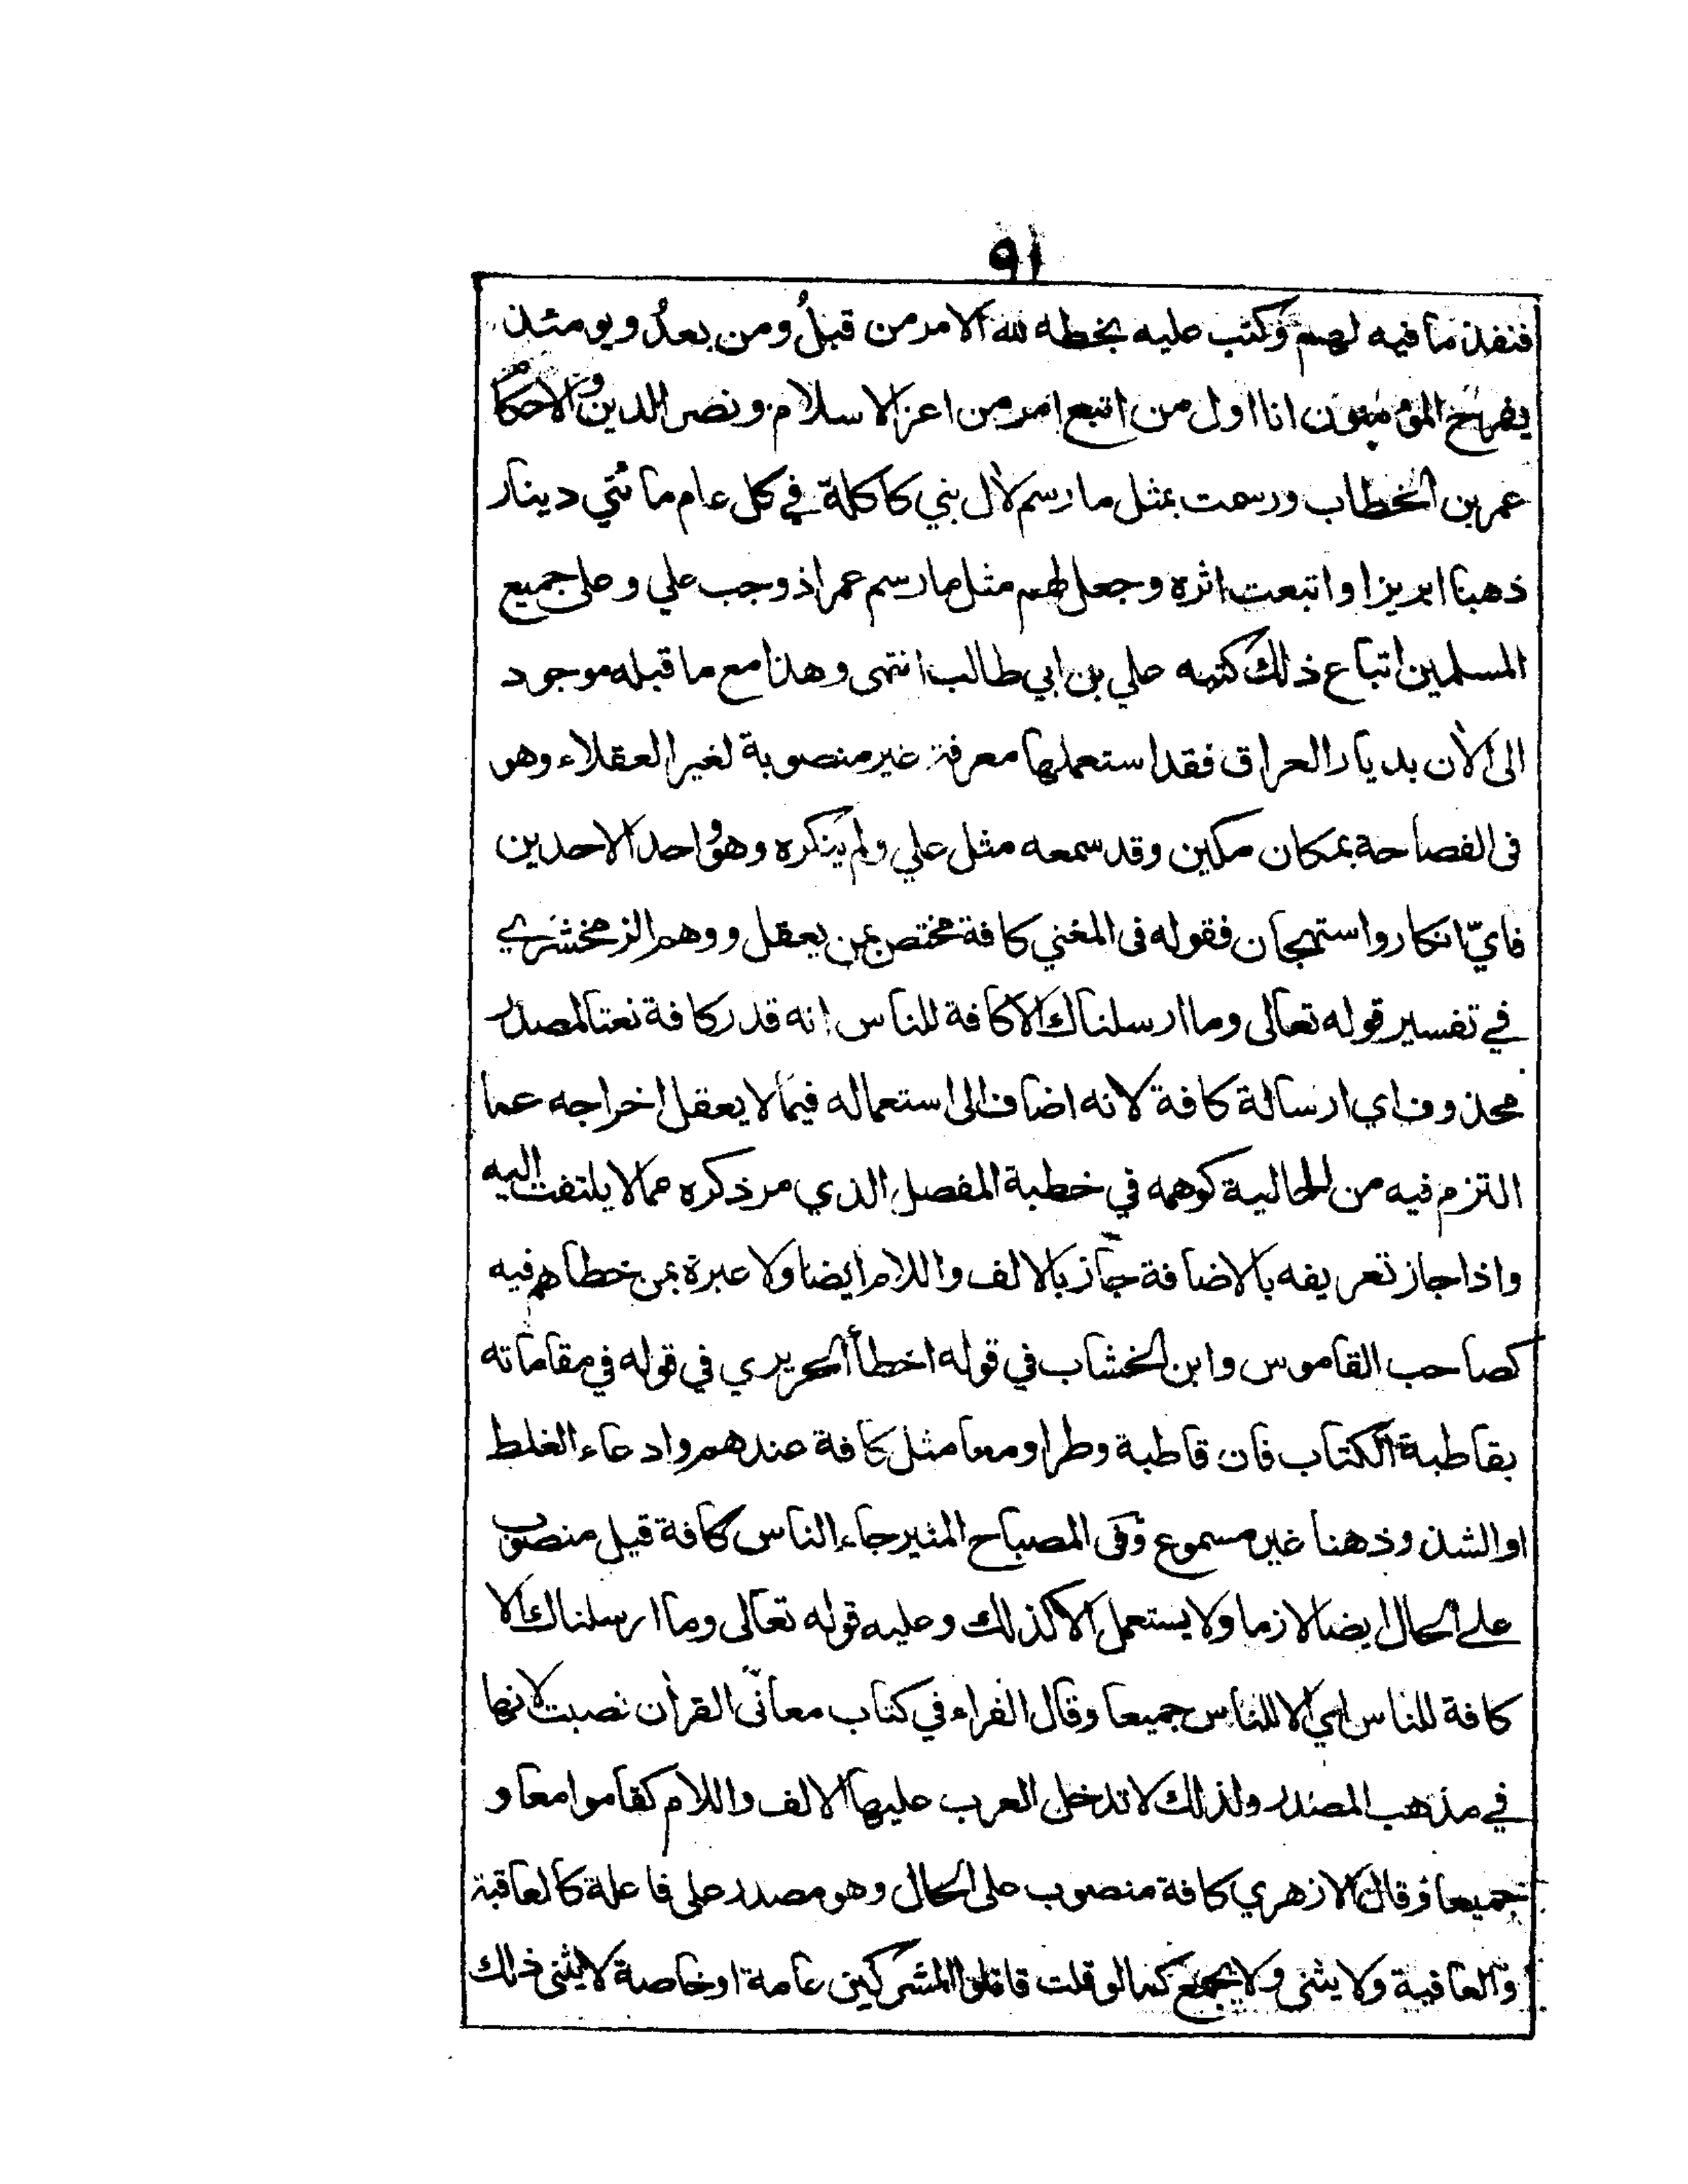 ٩١
فنفذ ما فيه لهم وكتب عليه بخطه لله الامر من قبلُ ومن بعدُ ويومئذ
يفرح المؤمنون انا اول من اتبع امر من اعز الاسلام ونصر الدين والاحكام
عمر بن الخطاب ورسمت بمثل ما رسم لآل بني كاكلة في كل عام مائتي دينار
ذهبا ابريزا واتبعت اثره وجعل لهم مثل ما رسم عمر اذ وجب علي وعلى جميع
المسلمين اتباع ذلك كتبه علي بن ابي طالب انتهى وهذا مع ما قبله موجود
الى الآن بديار العراق فقد استعملها معرفة غير منصوبة لغير العقلاء وهو
فى الفصاحة بمكان مكين وقد سمعه مثل علي ولم ينكره وهو واحد الاحدين
فايّ انكار واستهجان فقوله فى المغني كافة مختص بمن يعقل ووهم الزمخشري
في تفسير قوله تعالى وما ارسلناك الا كافة للناس انه قدر كافة نعتا لمصدر
محذوف اي ارسالة كافة لانه اضاف الى استعماله فيما لا يعقل اخراجه عما
التزم فيه من الحالية كوهمه في خطبة المفصل الذي مر ذكره مما لا يلتفت اليه
واذا جاز تعريفه بالاضافة جاز بالالف واللام ايضا ولا عبرة بمن خطاهم فيه
كصاحب القاموس وابن الخشاب في قوله اخطأ الحريري في قوله في مقاماته
بقاطبة الكتاب فان قاطبة وطرا ومعا مثل كافة عندهم وادعاء الغلط
او الشذوذ هنا غير مسموع وفى المصباح المنير جاء الناس كافة قيل منصوب
على الحال ايضا لازما ولا يستعمل الا كذلك وعليه قوله تعالى وما ارسلناك الا
كافة للناس اي الا للناس جميعا وقال الفراء في كتاب معاني القرآن نصبت لانها
في مذهب المصدر ولذلك لا تدخل العرب عليها الالف واللام كقاموا معا و
جميعا وقال الازهري كافة منصوب على الحال وهو مصدر على فاعلة كالعاقبة
والعافية ولا يثنى ولا يجمع كما لو قلت قاتلوا المشركين عامة او خاصة لا يثنى ذلك